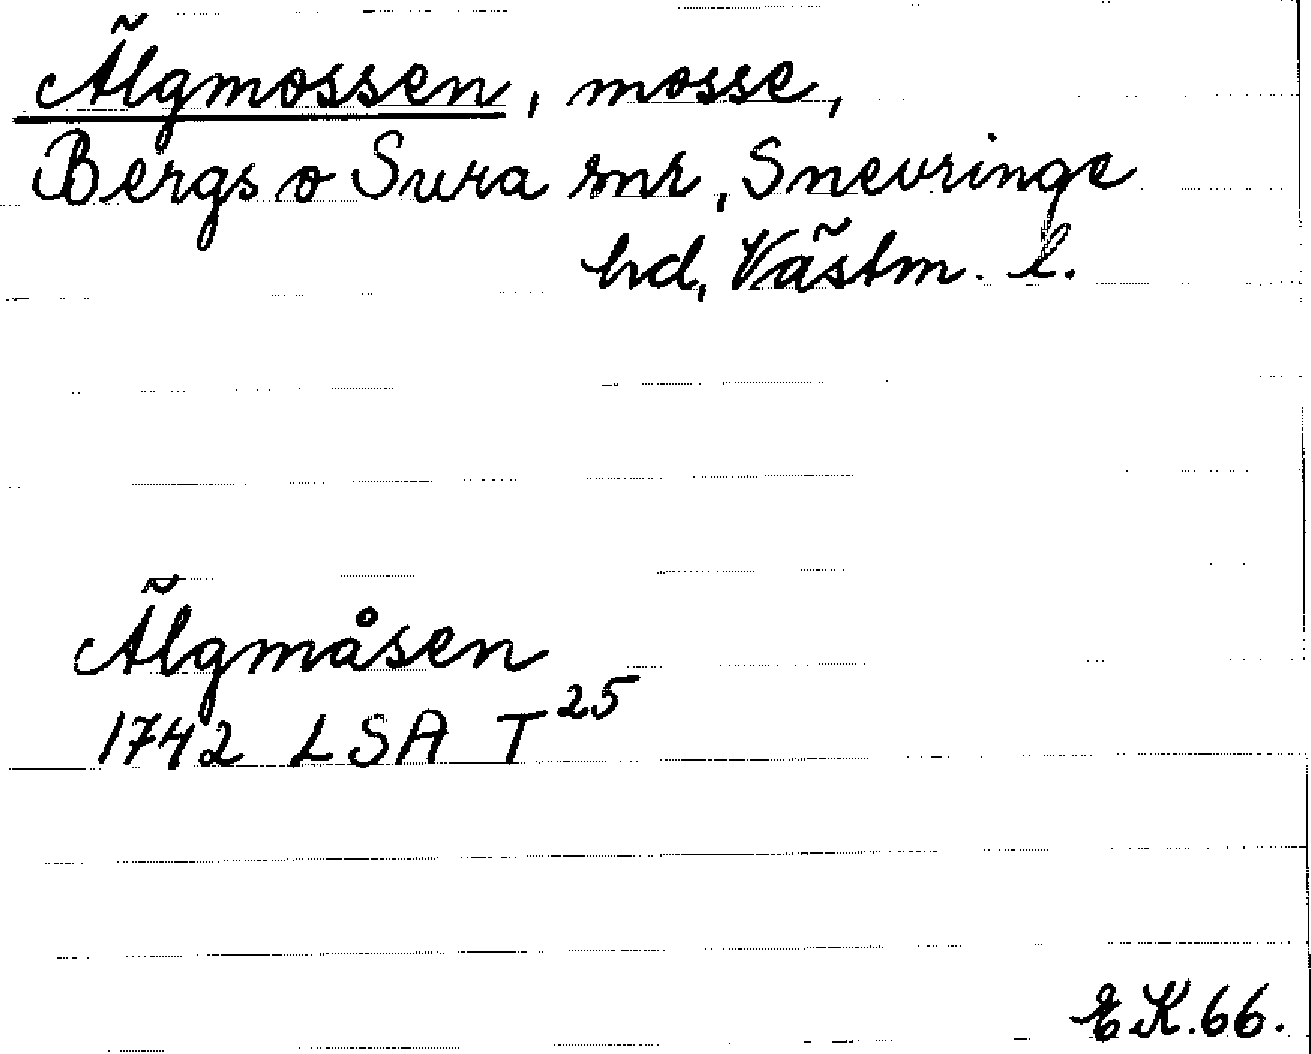 Älgmossen, mosse,
Bergs o Sura snr, Snevringe
hd, Västm. l.
Älgmåsen
1742 LSA T 25
E K. 66.